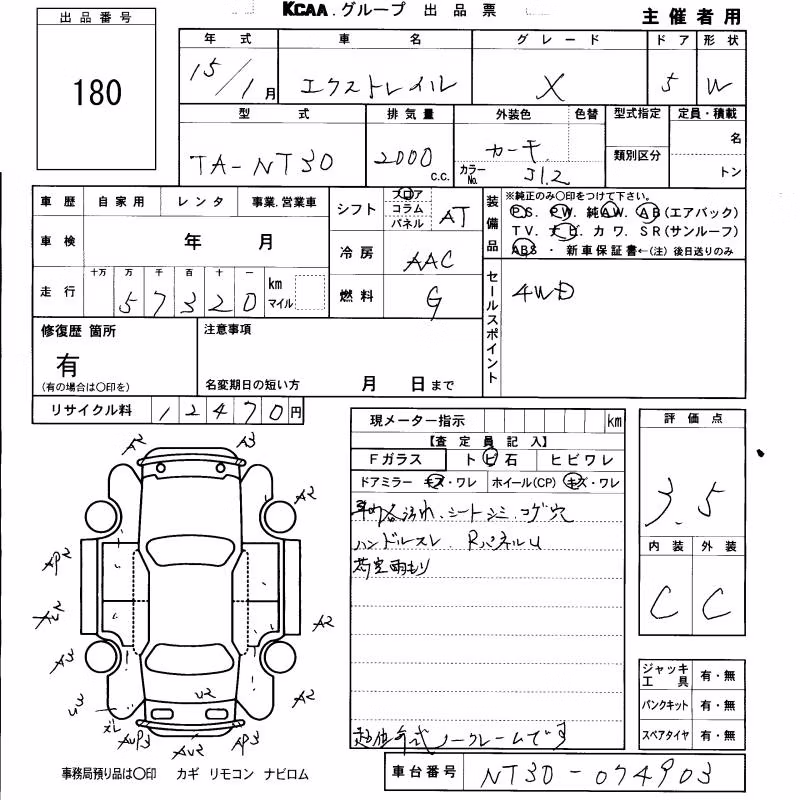 KCAA.グループ 出品票
主催者用
出品番号
180
年式 車名 グレード ドア 形状
15/1月 エクストレイル X 5 W
型式 排気量 外装色 色替 型式指定 定員・積載
TA-NT30 2000 c.c. カーキ カラーNo. J1.2 類別区分 名
トン
車歴 自家用 レンタ 事業.営業車
車検 年 月
走行 十万 万 千 百 十 一 km マイル
5 7 3 2 0
シフト フロア コラム パネル AT
冷房 AAC
燃料 G
装備品 ※純正のみ○印をつけて下さい。
P.S. P.W. 純A.W. A.B(エアバック)
T.V. ナビ カワ. S.R(サンルーフ)
ABS ・ 新車保証書←(注)後日送りのみ
セールスポイント 4WD
修復歴 箇所
有
(有の場合は○印を)
注意事項
名変期日の短い方 月 日まで
リサイクル料 1 2 4 7 0 円
現メーター指示 km
【査定員記入】
Fガラス トビ石 ヒビワレ
ドアミラー キズ・ワレ ホイール(CP) キズ・ワレ
汚れ.シートシミ.コゲ穴
ハンドルスレ. RパネルU
荷室雨もり
ノークレームです
評価点
3.5
内装 外装
C C
ジャッキ工具 有・無
パンクキット 有・無
スペアタイヤ 有・無
A2 A3
A2
AP2
A2
A3
A2
ズレ
AUP3 AU2 AP3
U2
事務局預り品は○印 カギ リモコン ナビロム
車台番号 NT30-074903